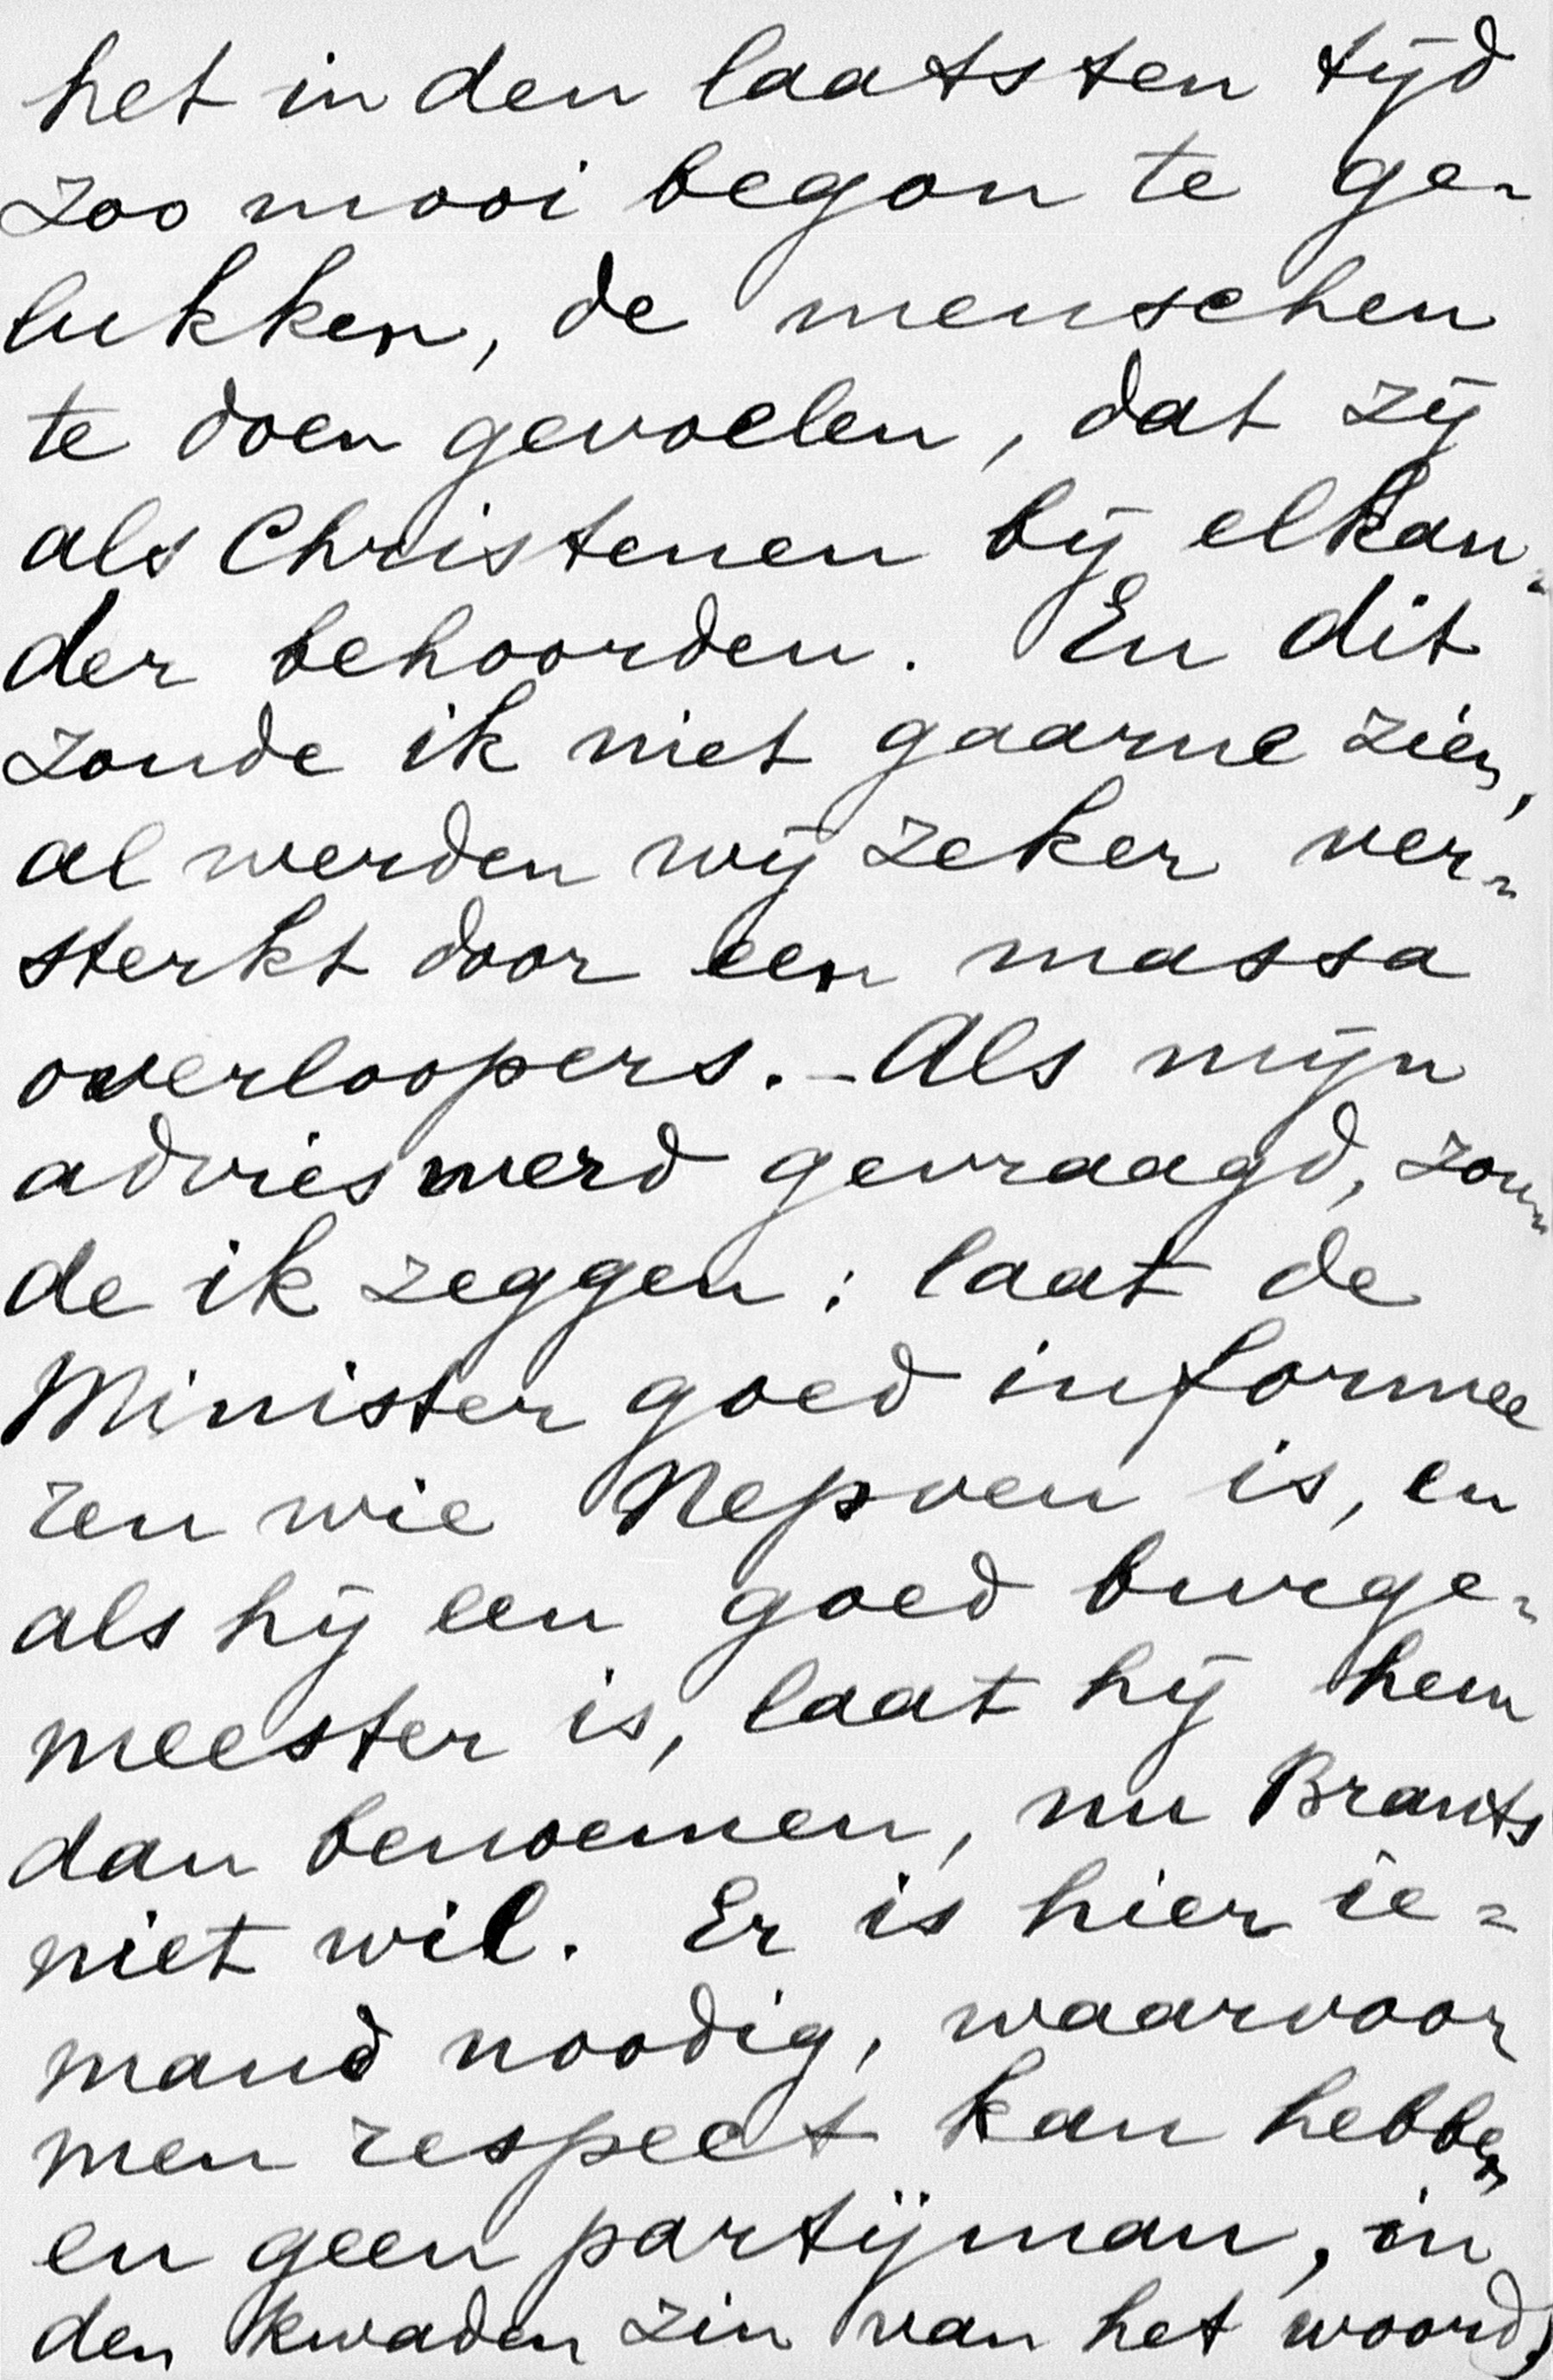 het in den laatsten tijd
zoo mooi begon te ge-
lukken, de menschen
te doen gevoelen, dat zij
als Christenen bij elkan-
der behoorden. En dit
zoude ik niet gaarne zien,
al werden wij zeker ver-
sterkt door een massa
overloopers. - Als mijn
advies werd gevraagd, zou-
de ik zeggen: laat de
Minister goed informee
ren wie Nepveu is, en
als hij een goed burge-
meester is, laat hij hem
dan benoemen, nu Brants
niet wil. Er is hier ie-
mand noodig, waarvoor
men respect kan hebben
en geen partijman, in
den kwaden zin van het woord,